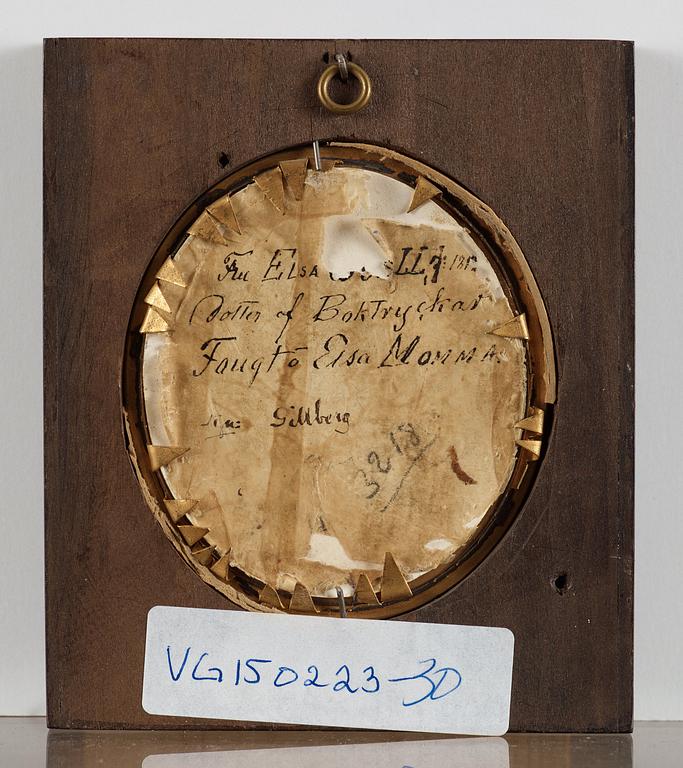 Fru Elsa
Dotter af Boktryckar
Fougt o Elsa Momma.
Sign: Gillberg
3218
VG150223-30